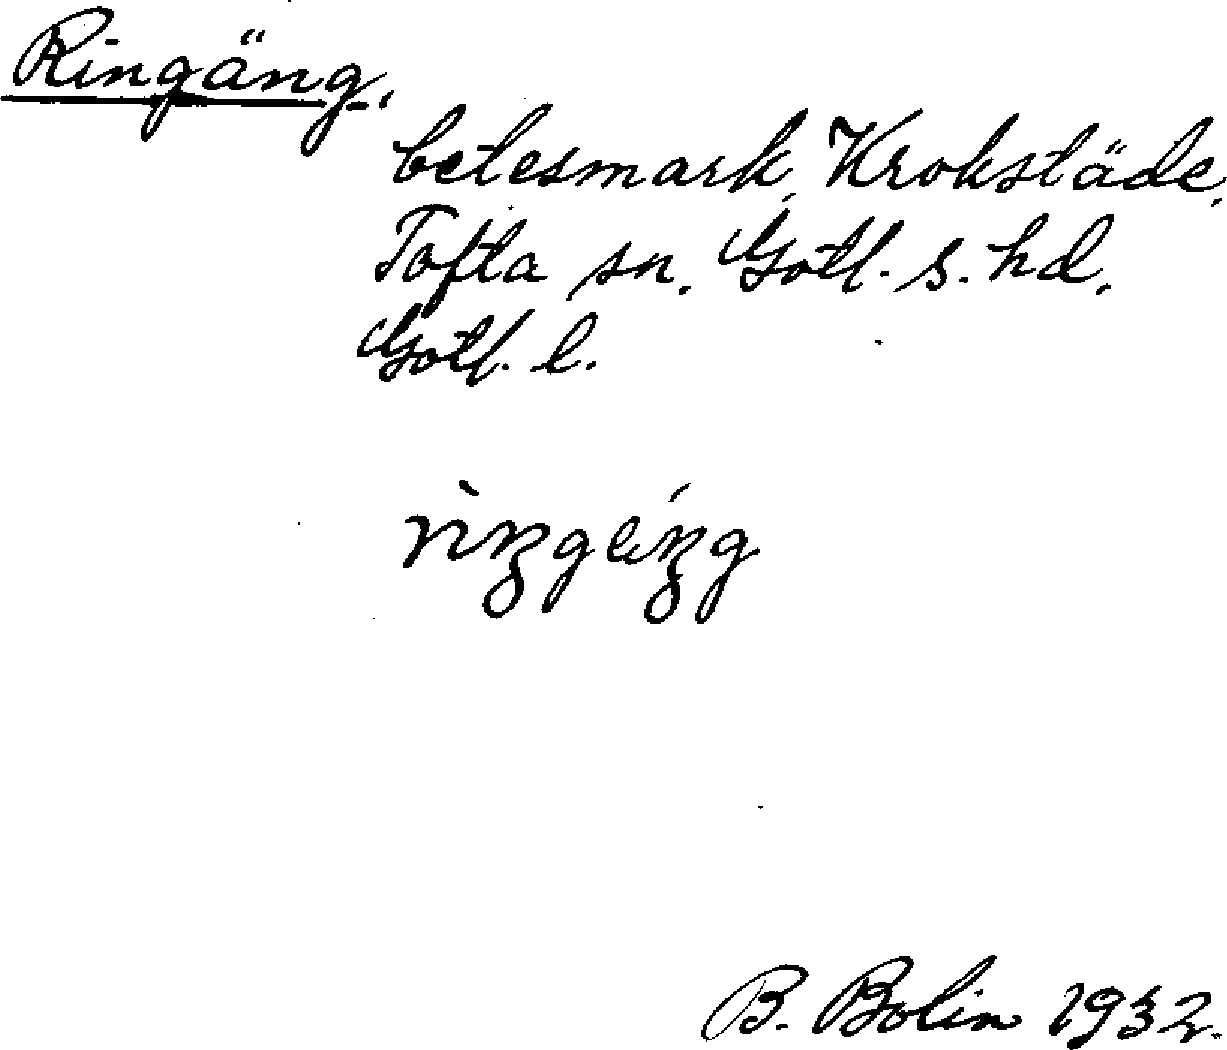 Ringäng,
betesmark, Krokstäde,
Tofta sn. Gotl. s. hd.
Gotl. l.
B. Bolin 1932.